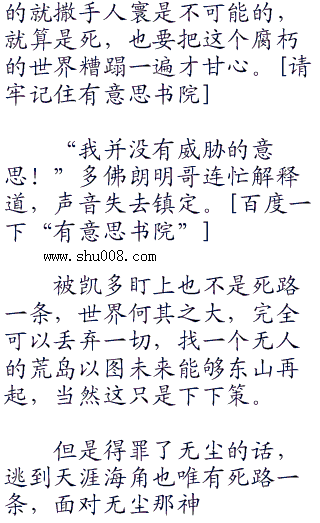 的就撒手人寰是不可能的，
就算是死，也要把这个腐朽
的世界糟蹋一遍才甘心。[请
牢记住有意思书院]
“我并没有威胁的意
思！”多佛朗明哥连忙解释
道，声音失去镇定。[百度一
下“有意思书院”]
www.shu008.com
被凯多盯上也不是死路
一条，世界何其之大，完全
可以丢弃一切，找一个无人
的荒岛以图未来能够东山再
起，当然这只是下下策。
但是得罪了无尘的话，
逃到天涯海角也唯有死路一
条，面对无尘那神